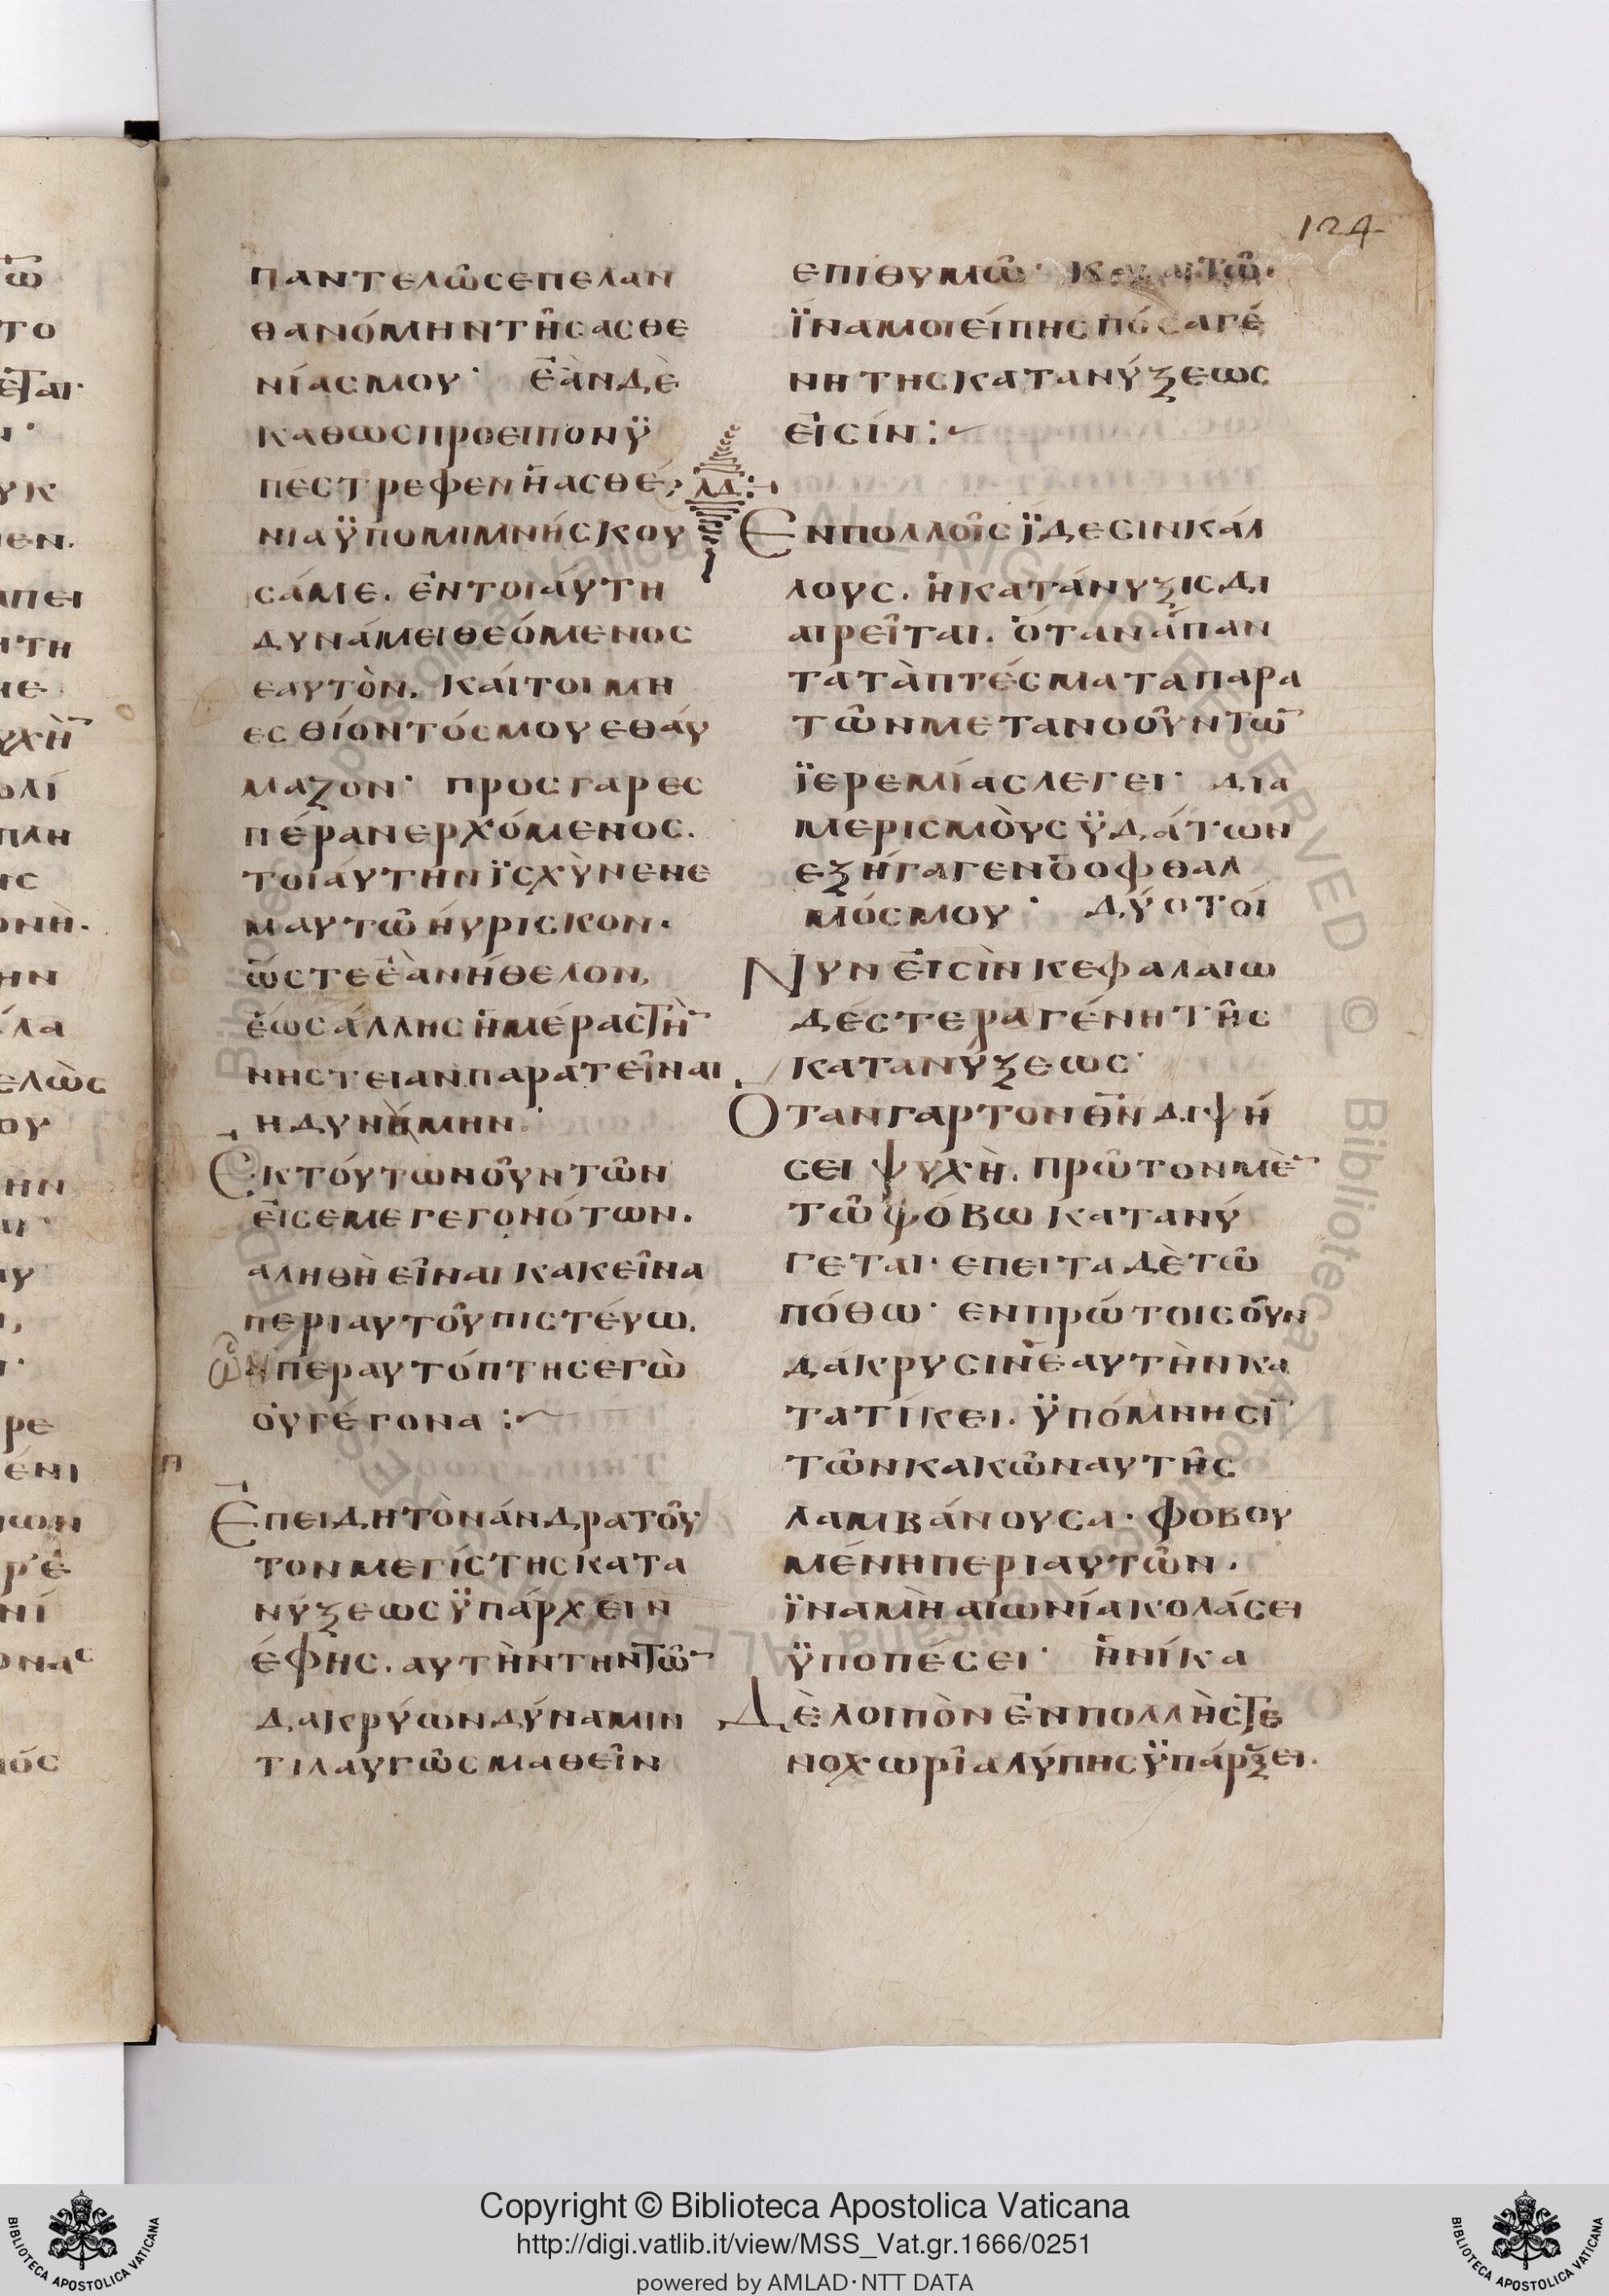 124
παντελῶσεπελαν
θανόμηντῆσασθε
νίασμου· ἐὰνδὲ
καθωσπροειπονϋ
πέστρεφενἡασθέ
νιαϋπομιμνήσκου
σάμε. ἐντοιάυτη
δυνάμειθεόμενος
εαυτὸν. κάιτοιμη
εσθίοντόσμουεθάυ
μαζον· προσγαρεσ
πέρανερχόμενος.
τοιάυτηνϊσχὺνενε
μαυτῶἡυρισκον.
ὥστεἐὰνήθελον,
ἑώσἄλλησἡμέραςτὴ̄
νηστειανπαρατεῖναι
ηδυνήμην.
Ἐκτόυτωνοῦντῶν
ἐισεμεγεγονότων.
αληθὴεῖναικακεῖνα
περιαυτοῦπιστέυω.
ὧνπεραυτόπτησεγὼ
ὀυγέγονα :
Ἐπειδητὸνάνδρατοῦ
τονμεγίστησκατα
νύξεωσϋπάρχειν
έφης. αυτὴντηντῶ̄
δακρύωνδύναμιν
τιλαυγῶσμαθεῖν
επιθυμῶ·
ϊναμοιείπησπόσαγέ
νητησκατανύξεως
ἐισίν :
ΛΔ:
Ενπολλοῖσϊδεσινκάλ
λους. ἡκατάνυξισδι
αιρεῖται. ὁτανἁπαν
τατὰπτέσματαπαρα
τῶνμετανοοῦντῶ̄
ϊερεμίασλεγει· δια
μερισμὸυσϋδάτων
εξήγαγενὁοφθαλ
μόσμου· δύοτοί
Νυνἐισὶνκεφαλαιω
δέστεραγένητῆς
κατανύξεως·
Οτανγαρτονθ̅ν̅διψή
σειψυχὴ. πρῶτονμὲ̄
τῶφόβωκατανύ
γεται· επειταδὲτῶ
πόθω· ενπρώτοισοῦν
δάκρυσινἑαυτὴνκα
τατίκει. ϋπόμνησῑ
τῶνκακῶναυτῆς
λαμβάνουσα· φοβου
μένηπεριαυτῶν.
ϊναμὴαιωνίακολάσει
ϋποπέσει· ἡνίκα
Δὲλοιπὸνἐνπολλὴστε
νοχωρῖαλύπησϋπάρξει.
Copyright © Biblioteca Apostolica Vaticana
http://digi.vatlib.it/view/MSS_Vat.gr.1666/0251
powered by AMLAD·NTT DATA